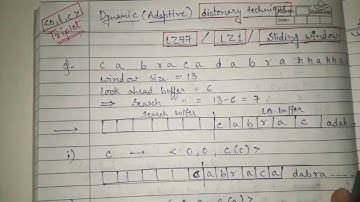 <o,l,c>
Triplet
Dynamic (Adaptive) dictonary technique
LZ77 / LZ1 / Sliding window
Q- c a b r a c a d a b r a
window size = 13
look ahead buffer = 6
⇒ Search " = 13-6 = 7
Search buffer LA buffer
→ c a b r a c adab
i) c → < 0, 0, c(c) >
c a b r a c a dabra